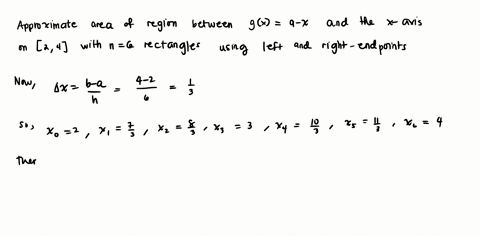 Approximate area of region between g(x) = 9-x and the x-axis
on [2,4] with n=6 rectangles using left and right-endpoints
Now, Δx = b-a/n = 4-2/6 = 1/3
So, x₀ = 2, x₁ = 7/3, x₂ = 8/3, x₃ = 3, x₄ = 10/3, x₅ = 11/3, x₆ = 4
Ther